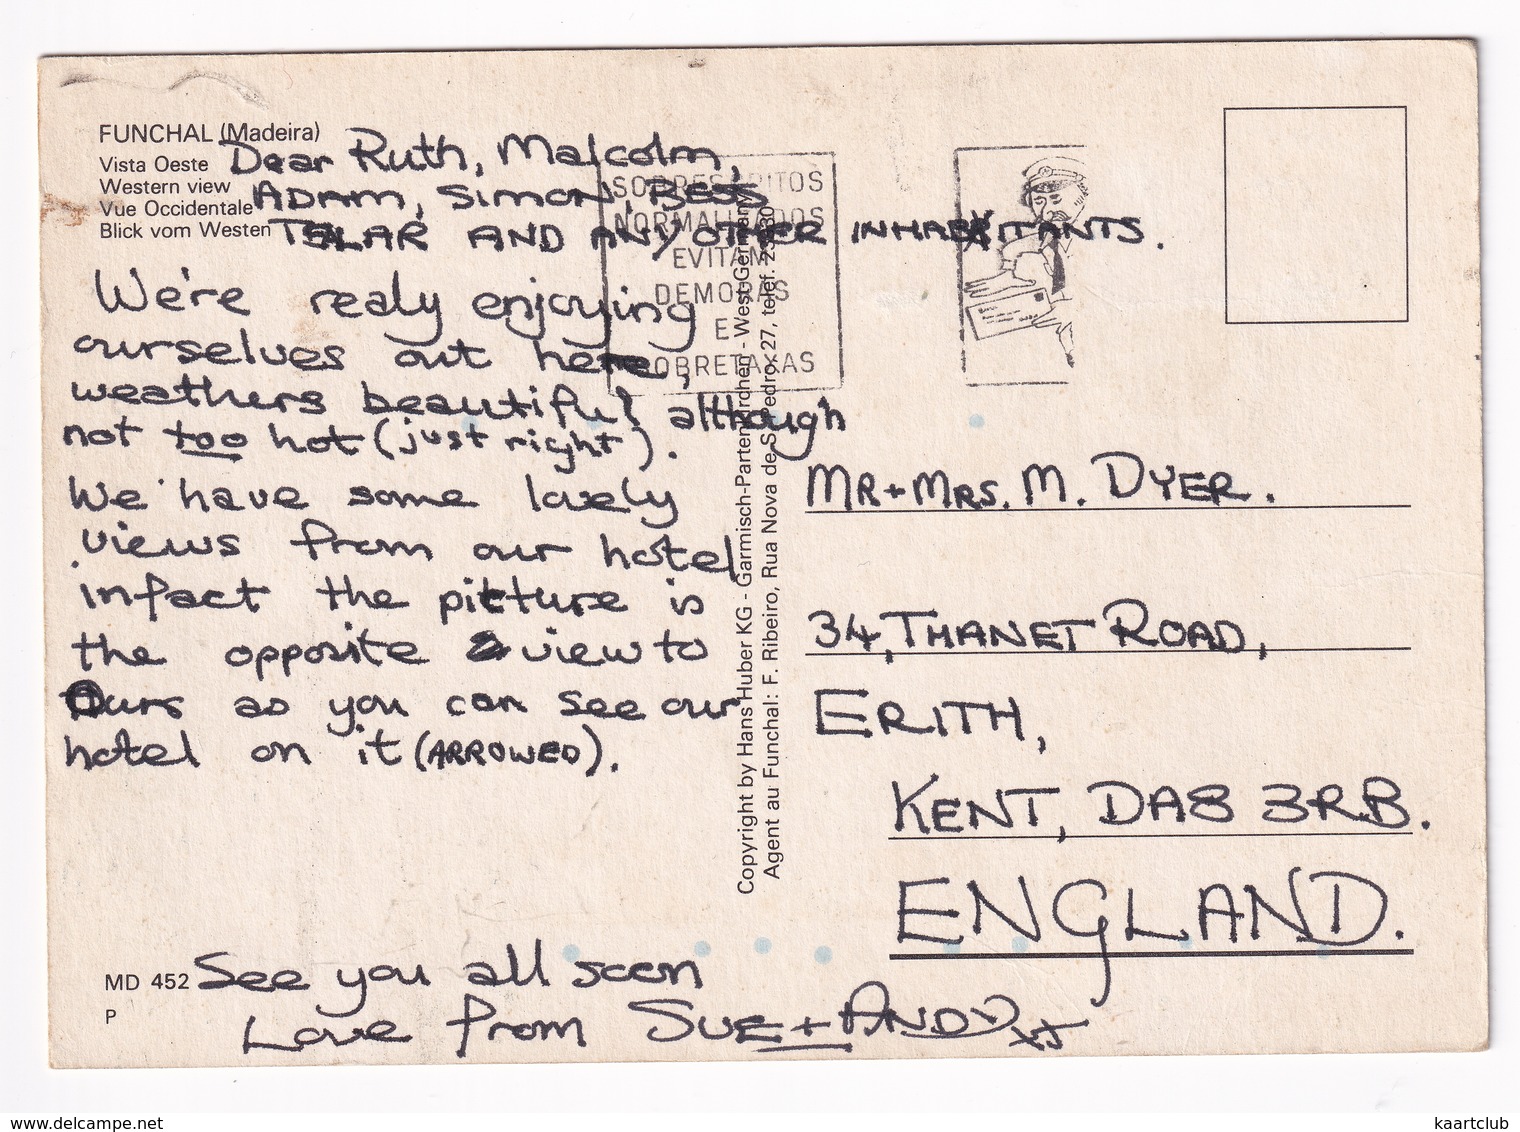 FUNCHAL (Madeira)
Vista Oeste
Western view
Vue Occidentale
Blick vom Westen
Dear Ruth, Malcolm,
ADAM, SIMON, BESS
AND ANY OTHER INHABITANTS.
We're realy enjoying
ourselves out here,
weathers beautiful although
not too hot (just right).
We have some lovely
views from our hotel
infact the picture is
the opposite view to
Ours as you can see our
hotel on it (ARROWED).
See you all soon
Love from SUE + ANDY xx
MD 452
P
SOBRESCRITOS
NORMALIZADOS
EVITAM
DEMORAS
E
SOBRETAXAS
Copyright by Hans Huber KG - Garmisch-Partenkirchen - West Germany
Agent au Funchal: F. Ribeiro, Rua Nova de S. Pedro 27, telef.
MR + MRS. M. DYER.
34, THANET ROAD,
ERITH,
KENT, DA8 3RB.
ENGLAND.
delcampe.net
kaartclub